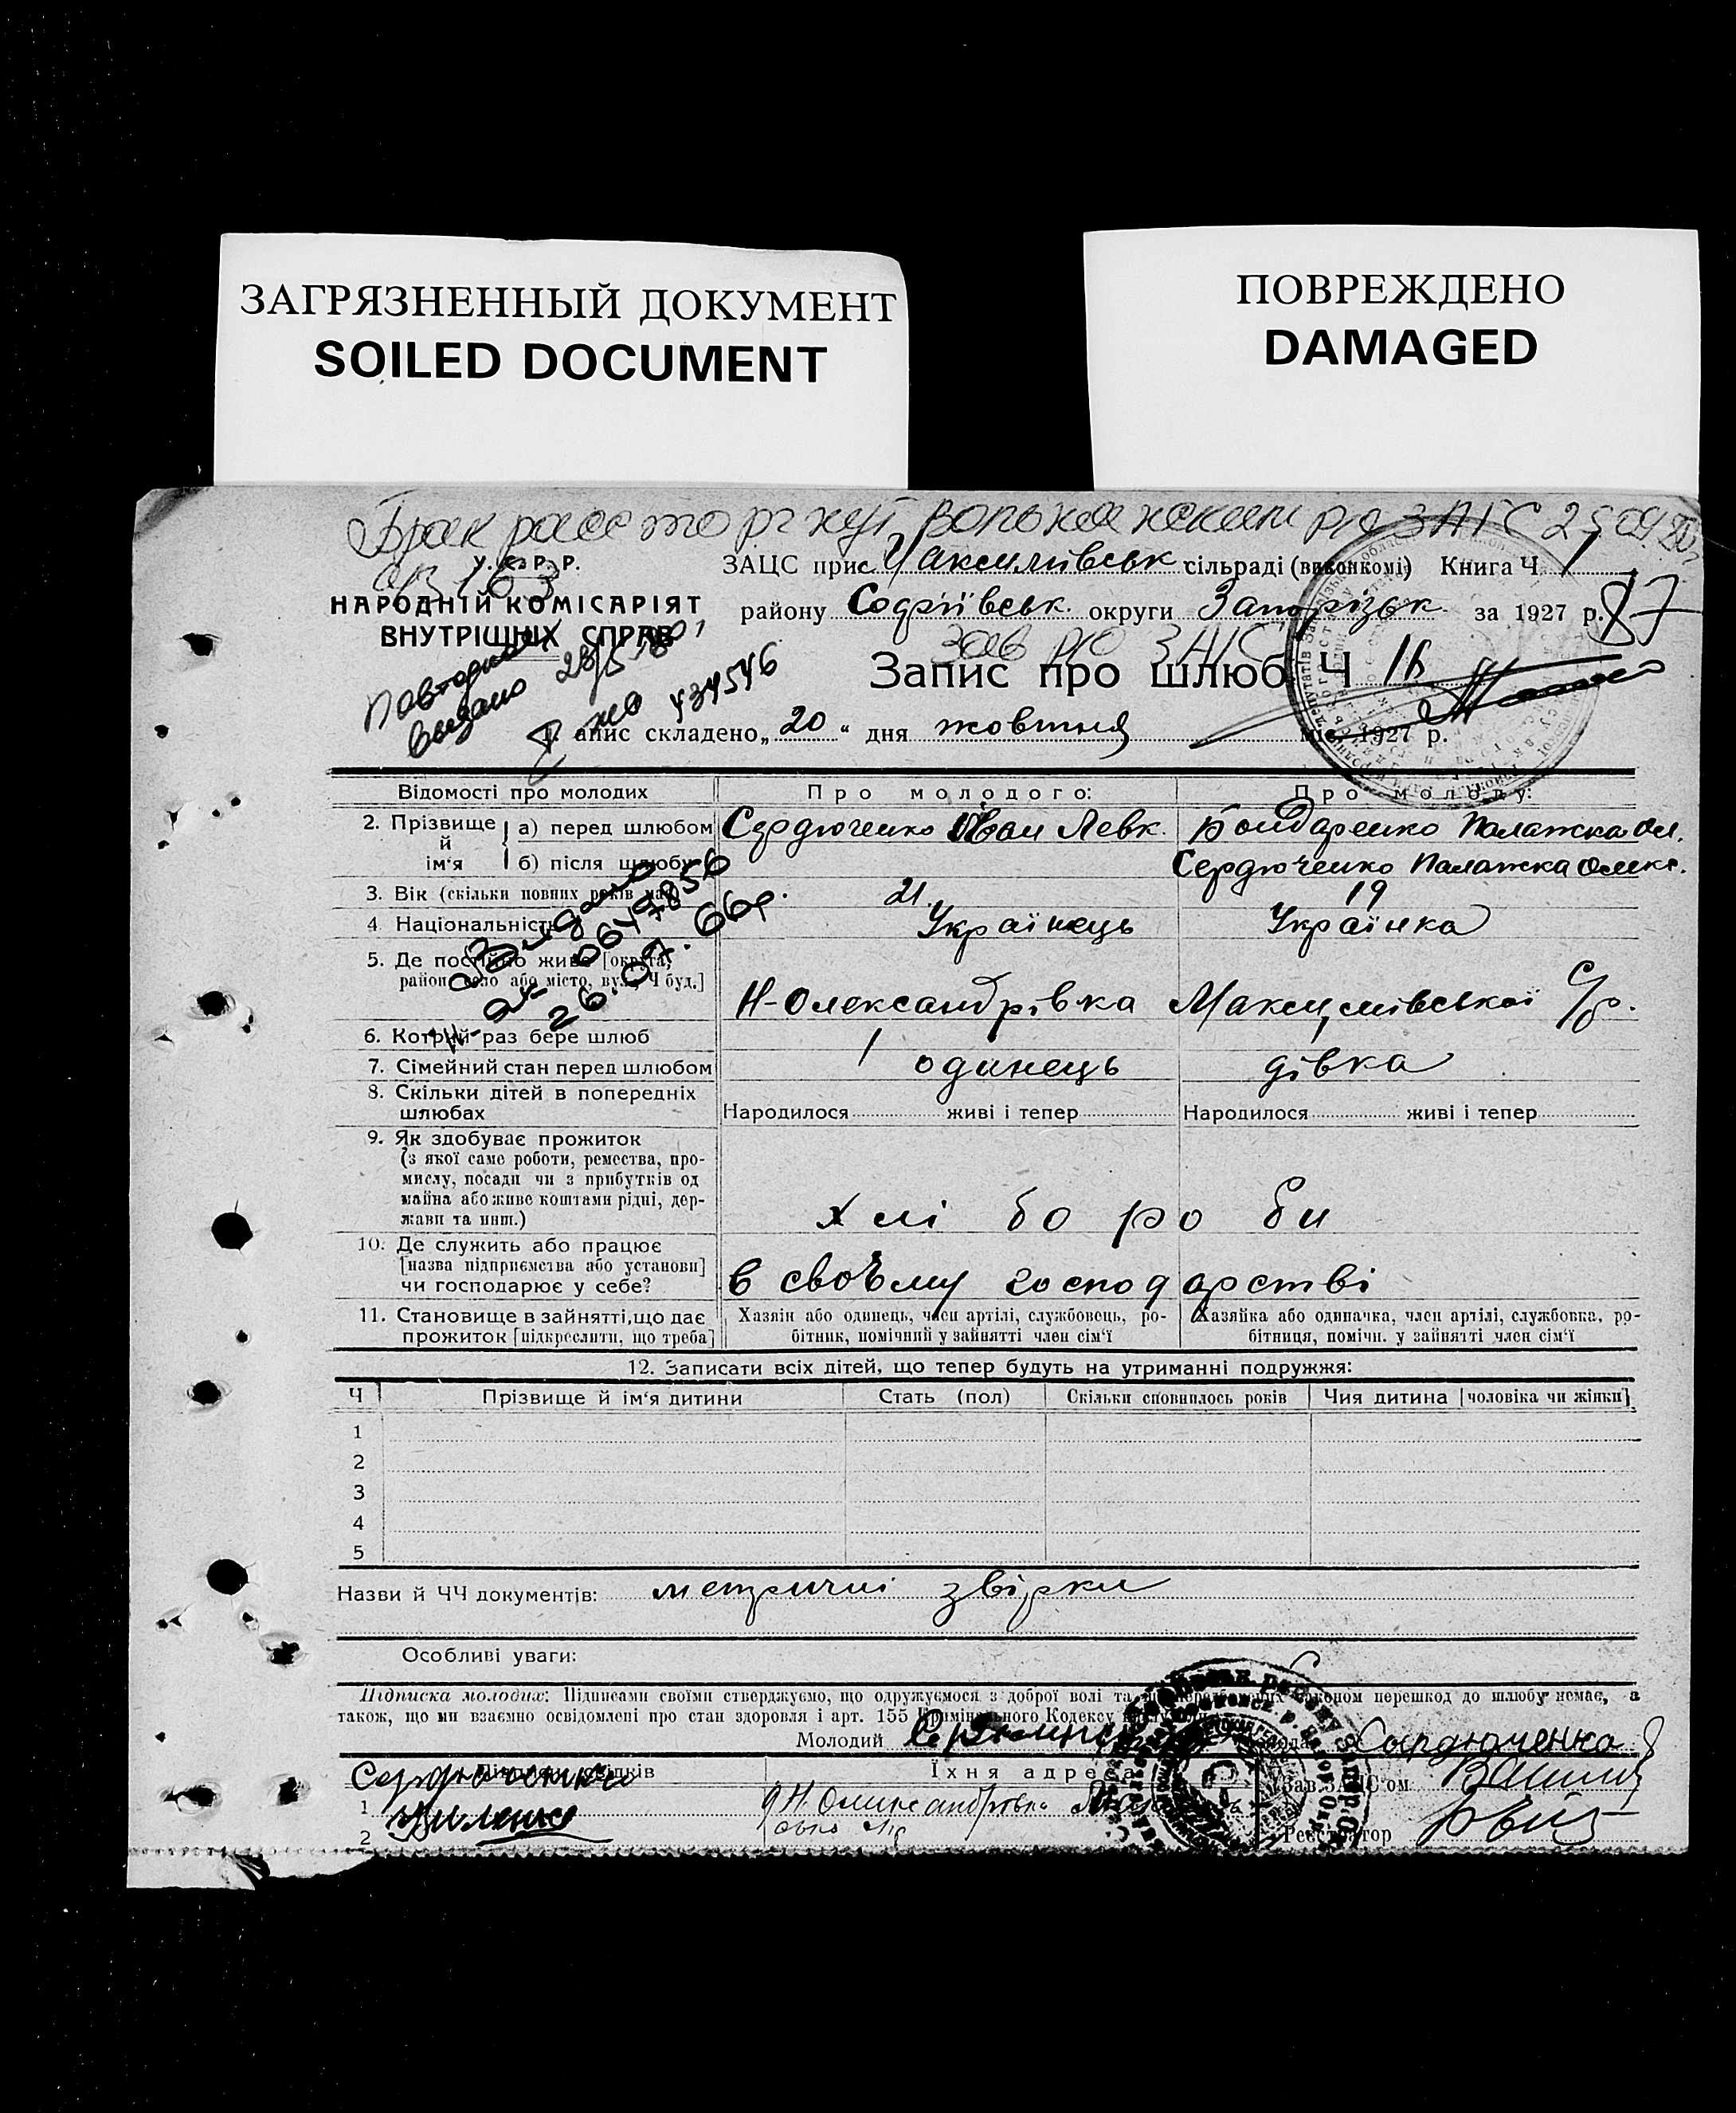 ЗАГРЯЗНЕННЫЙ ДОКУМЕНТ
SOILED DOCUMENT
ПОВРЕЖДЕНО
DAMAGED
Брак расторгнут Вольнянским р/о ЗАГС 25
У. С. Р. Р.
163
НАРОДНІЙ КОМІСАРІЯТ
ВНУТРІШНІХ СПРАВ
ЗАЦС при Максимівськ. сільраді (виконкомі) Книга Ч. 1
району Софіївськ. округи Запорізьк. за 1927 р.
87
Зав р/о ЗАГС
Запис про шлюб Ч 16
Повторное
выдано 28/5-80
434546
1. Запис складено „20“ дня жовтня міс. 1927 р.
Відомості про молодих
Про молодого:
Про молоду:
2. Прізвище й ім'я
а) перед шлюбом
Сердюченко Іван Левк.
Бондаренко Палажка Ол.
б) після шлюбу
Сердюченко Палажка Олекс.
3. Вік (скільки повних років має)
21.
19
4. Національність
Українець
Українка
Видано
0647856
26.07.66р.
5. Де постійно живе [округа,
район, село або місто, вул., Ч буд.]
Н-Олександрівка Максимівської С/р.
6. Котрий раз бере шлюб
1
7. Сімейний стан перед шлюбом
одинець
дівка
8. Скільки дітей в попередніх
шлюбах
Народилося живі і тепер
Народилося живі і тепер
9. Як здобуває прожиток
(з якої саме роботи, ремества, про-
мислу, посади чи з прибутків од
майна або живе коштами рідні, дер-
жави та инш.)
хлібороби
10. Де служить або працює
[назва підприємства або установи]
чи господарює у себе?
в своєму господарстві
11. Становище в зайнятті, що дає
прожиток [підкреслити, що треба]
Хазяїн або одинець, член артілі, службовець, ро-
бітник, помічний у зайнятті член сім'ї
Хазяйка або одиначка, член артілі, службовка, ро-
бітниця, помічн. у зайнятті член сім'ї
12. Записати всіх дітей, що тепер будуть на утриманні подружжя:
Ч
Прізвище й ім'я дитини
Стать (пол)
Скільки сповнилось років
Чия дитина [чоловіка чи жінки]
1
2
3
4
5
Назви й ЧЧ документів: метричні звірки
Особливі уваги:
Підписка молодих: Підписами своїми стверджуємо, що одружуємося з доброї волі та що передбачених законом перешкод до шлюбу немає, а
також, що ми взаємно освідомлені про стан здоровля і арт. 155 Кримінального Кодексу
Молодий
Молода Сердюченко
Підписи свідків
Їхня адреса
Зав. ЗАЦС'ом
Сердюченко
1
Н. Олександрівка
2
Реєстратор